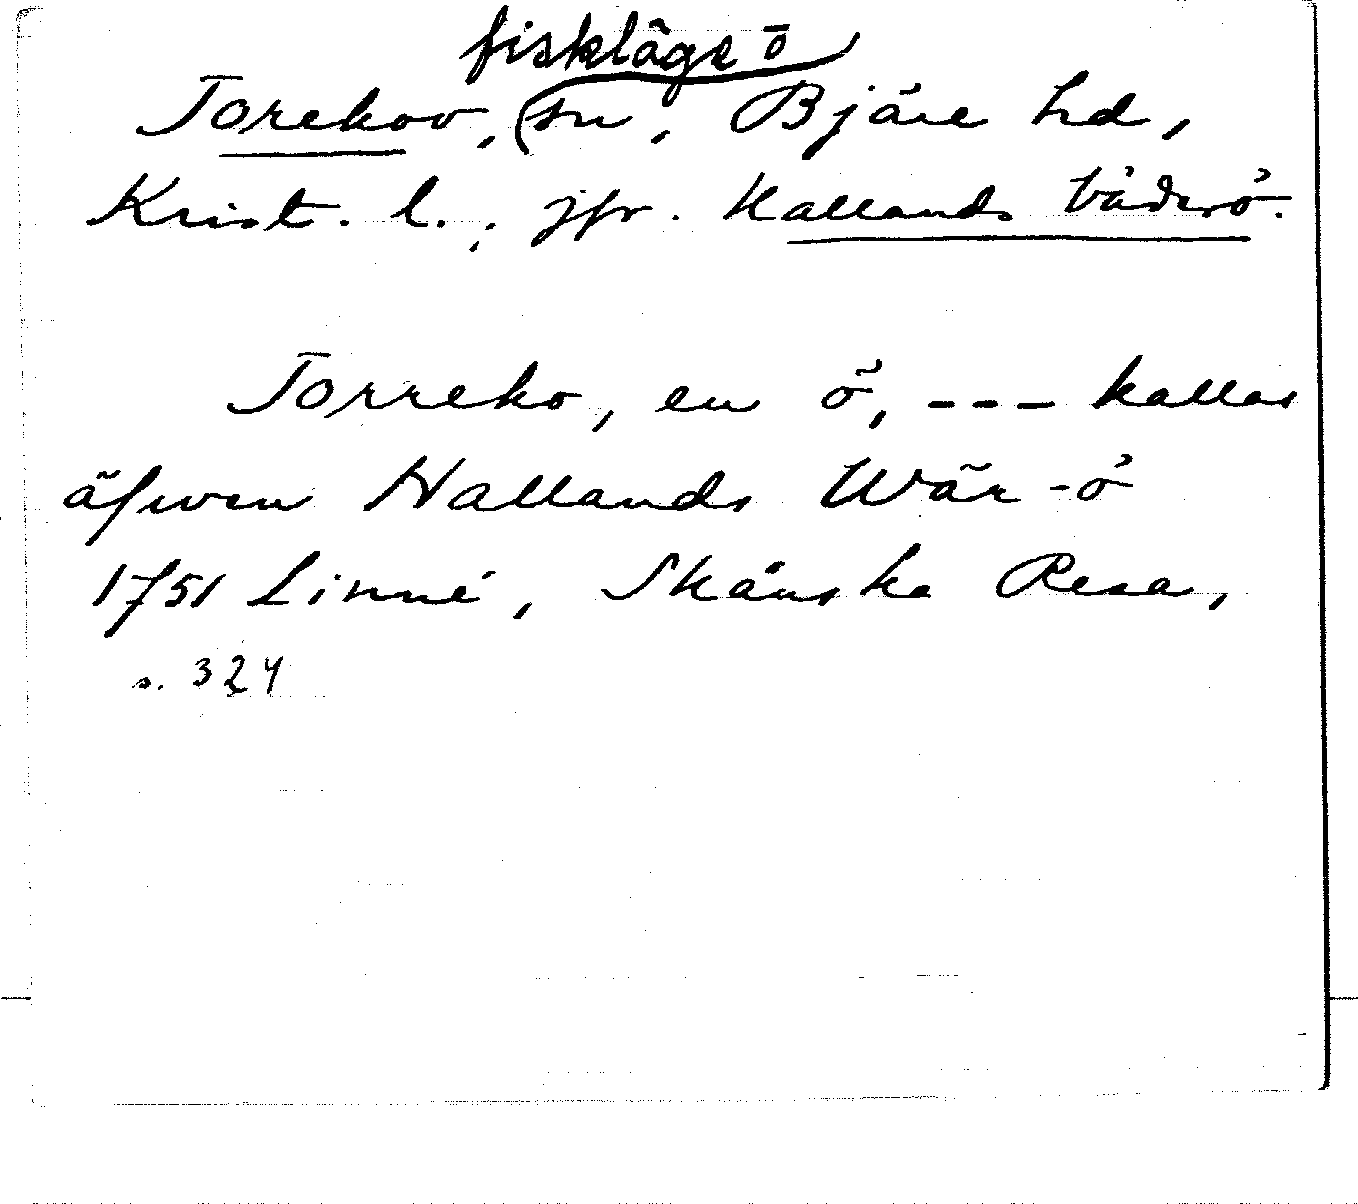 fiskläge ö
Torekov, sn, Bjäre hd,
Krist. l.; jfr. Hallands Väderö.
Torreko, en ö, --- kallas
äfwen Hallands Wär-ö
1751 Linné, Skånska Resa,
s. 324